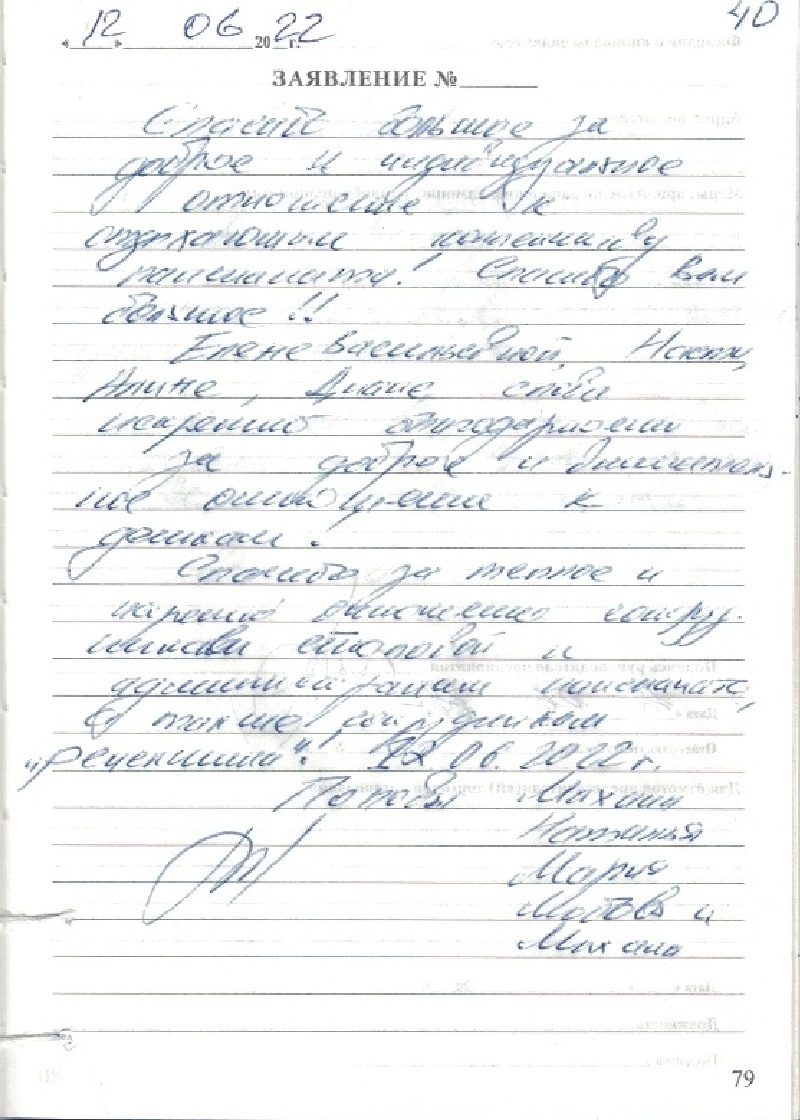 40
« 12 » 06 20 22 г.
ЗАЯВЛЕНИЕ №
Спасибо большое за
доброе и индивидуальное
отношение к
отдыхающим
пансионата! Спасибо Вам
большое!!
Елене Васильевной, Насти,
Алине, Диане,
искренне благодарности
за доброе и вниматель-
ное отношение к
деткам.
Спасибо за теплое и
хорошее отношение сотруд-
никам столовой и
администрации пансионата,
а также сотрудникам
"рецепшин"! 12.06.2022г.
Поповы Михаил
Наталья
Мария
Любовь и
Михаил
79